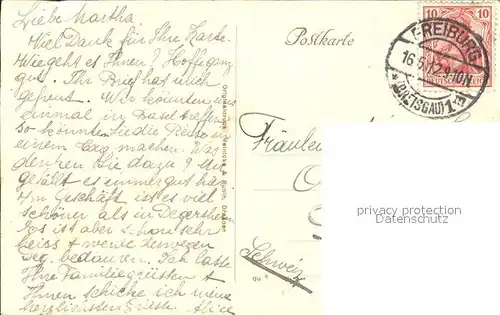 Liebe Martha
Viel Dank für Ihre Karte
Wie geht es Ihnen? Hoffe ganz
gut. Ihr Brief hat mich
gefreut. Wir könnten uns
einmal in Basel treffen
so könnten Sie die Reise in
einem Tag machen. Was
denken Sie dazu? Mir
gefällt es immer gut hier
Im Geschäft ist es viel
schöner als in Degersheim
Es ist aber schon sehr
heiss & werde deinen
weg. bedauern. Ich lasse
Ihre Familie grüssen &
Ihnen schicke ich meine
herzlichsten Grüsse Alice
Postkarte
Fräulein
Schweiz
10 10
FREIBURG
(BREISGAU)
privacy protection
Datenschutz